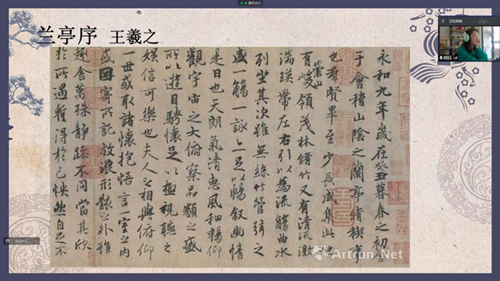 兰亭序 王羲之
永和九年歲在癸丑暮春之初會
于會稽山陰之蘭亭脩稧事
也羣賢畢至少長咸集此地
有崇山峻領茂林脩竹又有清流激
湍暎帶左右引以為流觴曲水
列坐其次雖無絲竹管弦之
盛一觴一詠亦足以暢敘幽情
是日也天朗氣清惠風和暢仰
觀宇宙之大俯察品類之盛
所以遊目騁懷足以極視聽之
娛信可樂也夫人之相與俯仰
一世或取諸懷抱悟言一室之內
或因寄所託放浪形骸之外雖
趣舍萬殊靜躁不同當其欣
於所遇暫得於己怏然自足不
Artron.Net